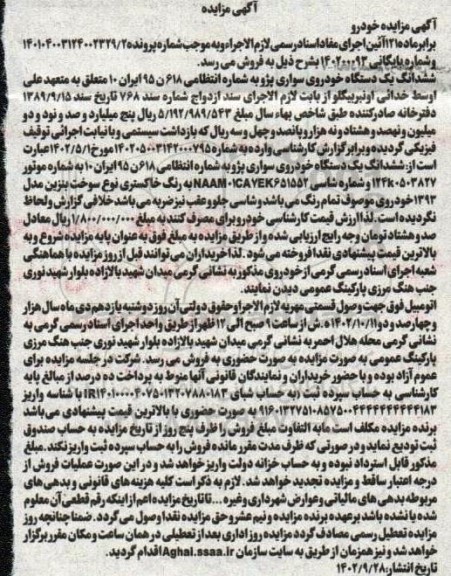 آگهی مزایده
آگهی مزایده خودرو
برابر ماده ۱۲۱ آئین اجرای مفاد اسناد رسمی لازم الاجراء و به موجب شماره پرونده ۱۴۰۱۰۴۰۰۳۱۲۴۰۰۲۳۲۹/۲
و شماره بایگانی ۱۴۰۲۰۰۰۹۳ بشرح ذیل به فروش می رسد.
ششدانگ یک دستگاه خودروی سواری پژو به شماره انتظامی ۶۱۸ ن ۹۵ ایران ۱۰ متعلق به متعهد علی
اوسط خدائی اونبر بیگلو از بابت لازم الاجرای سند ازدواج شماره سند ۷۶۸ تاریخ سند ۱۳۸۹/۹/۱۵
دفترخانه صادر کننده طبق شاخص بهاء سال مبلغ ۵/۱۹۲/۹۸۹/۵۴۳ ریال پنج میلیارد و صد و نود و دو
میلیون و نهصد و هشتاد و نه هزار و پانصد و چهل و سه ریال که بازداشت سیستمی و با نیابت اجرائی توقیف
فیزیکی گردیده و برابر گزارش کارشناسی وارده به شماره ۱۴۰۲۰۵۰۰۳۱۴۲۰۰۰۷۹۵ مورخ ۱۴۰۲/۵/۱ عبارت
است از: ششدانگ یک دستگاه خودروی سواری پژو به شماره انتظامی ۶۱۸ ن ۹۵ ایران ۱۰ به شماره موتور
۱۲۴k۰۵۰۳۸۲۷ و شماره شاسی NAAM۰۱CAYEK۶۵۱۵۵۲ به رنگ خاکستری نوع سوخت بنزین مدل
۱۳۹۳ خودروی موصوف تمام رنگ می باشد و شاسی جلو و عقب نیز ضربه می باشد خلافی گزارش و لحاظ
نگردیده است. لذا ارزش قیمت کارشناسی خودرو برای مصرف کننده به مبلغ ۱/۸۰۰/۰۰۰/۰۰۰ ریال معادل
صد و هشتاد تومان وجه رایج ارزیابی شده و از طریق مزایده به مبلغ فوق به عنوان پایه مزایده شروع و به
بالاترین قیمت پیشنهادی نقدا فروخته می شود. لذا خریداران می توانند قبل از روز مزایده با هماهنگی
شعبه اجرای اسناد رسمی گرمی از خودروی مذکور به نشانی گرمی میدان شهید پالازاده بلوار شهید نوری
جنب هنگ مرزی پارکینگ عمومی دیدن نمایند.
اتومبیل فوق جهت وصول قسمتی مهریه لازم الاجرا و حقوق دولتی آن روز دوشنبه یازدهم دی ماه سال هزار
و چهارصد و دو ۱۴۰۲/۱۰/۱۱ ه.ش از ساعت ۹ صبح الی ۱۲ ظهر از طریق واحد اجرای اسناد رسمی گرمی به
نشانی گرمی محله هلال احمر به نشانی گرمی میدان شهید پالازاده بلوار شهید نوری جنب هنگ مرزی
پارکینگ عمومی به صورت مزایده به صورت حضوری به فروش می رسد. شرکت در جلسه مزایده برای
عموم آزاد بوده و با حضور خریداران و نمایندگان قانونی آنها منوط به پرداخت ده درصد از مبالغ پایه
کارشناسی به حساب سپرده ثبت به حساب شبای IR۱۴۰۱۰۰۰۰۴۰۷۵۰۱۳۲۰۷۸۸۰۱۸۳ با شناسه واریز
۹۱۶۰۱۳۲۷۵۱۰۸۵۷۵۰۰۴۴۴۴۴۴۴۴۴۴۱۸۳ به صورت حضوری با بالاترین قیمت پیشنهادی می باشد
برنده مزایده مکلف است مابه التفاوت مبلغ فروش را ظرف پنج روز از تاریخ مزایده به حساب صندوق
ثبت تودیع نماید و در صورتی که ظرف مدت مقرر مانده فروش را به حساب سپرده ثبت واریز نکند. مبلغ
مذکور قابل استرداد نبوده و به حساب خزانه دولت واریز خواهد شد و در این صورت عملیات فروش از
درجه اعتبار ساقط و مزایده تجدید خواهد شد. لازم به ذکر است کلیه هزینه های قانونی و بدهی های
مربوطه بدهی های مالیاتی و عوارض شهرداری و غیره... تا تاریخ مزایده اعم از اینکه رقم قطعی آن معلوم
شده یا نشده باشد بر عهده برنده مزایده و نیم عشر و حق مزایده نقدا وصول می گردد. ضمنا چنانچه روز
مزایده تعطیل رسمی مصادف گردد مزایده روز اداری بعد از تعطیلی در همان ساعت و مکان مقرر برگزار
خواهد شد و نیز همزمان از طریق به سایت سازمان Aghal.ssaa.ir اقدام گردید.
تاریخ انتشار: ۱۴۰۲/۹/۲۸